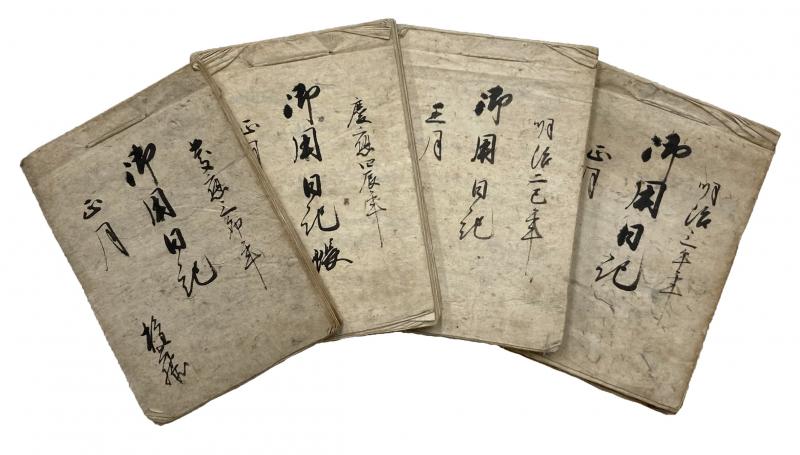 慶應三卯年
御用日記
正月
慶應四辰年
御用日記帳
正月
明治二巳年
御用日記
正月
明治三午年
御用日記
正月